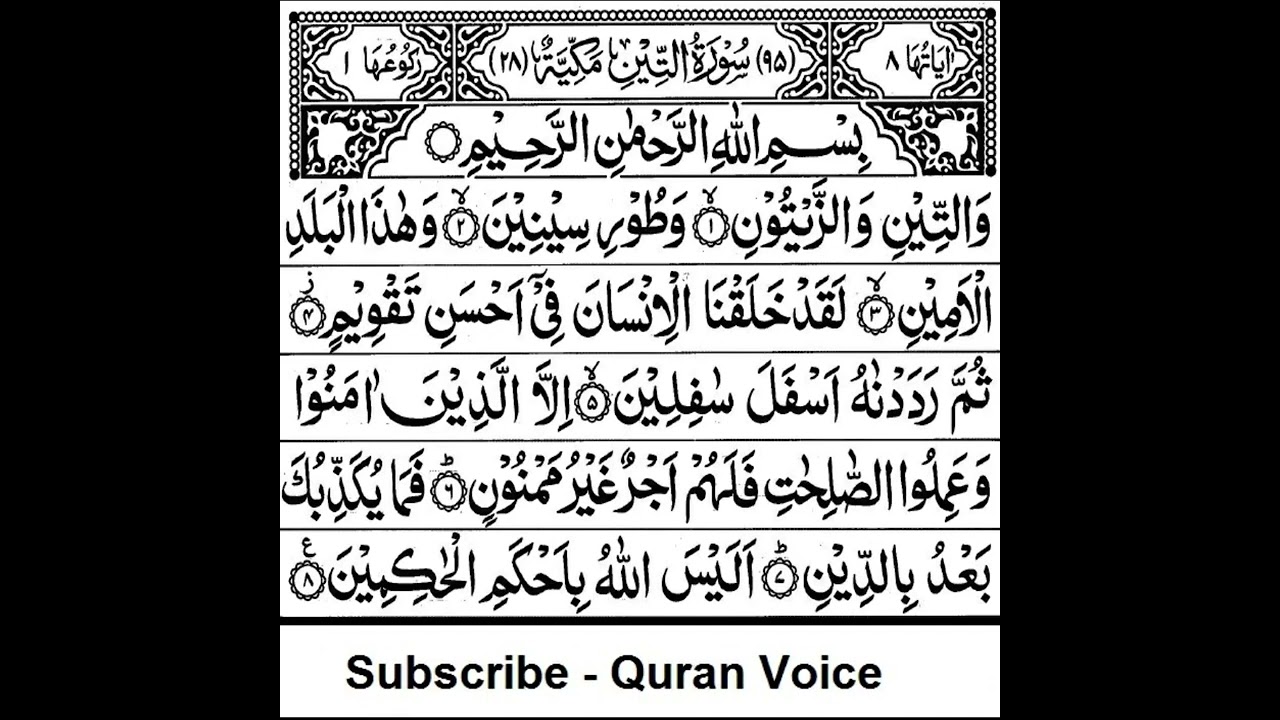 اٰیَاتُهَا ٨ (٩٥) سُوْرَةُ التِّيْنِ مَكِّيَّةٌ (٢٨) رُكُوْعُهَا ١
بِسْمِ اللّٰهِ الرَّحْمٰنِ الرَّحِيْمِ ۝
وَالتِّيْنِ وَالزَّيْتُوْنِ ۙ﴿١﴾ وَطُوْرِ سِيْنِيْنَ ۙ﴿٢﴾ وَهٰذَا الْبَلَدِ
الْاَمِيْنِ ۙ﴿٣﴾ لَقَدْ خَلَقْنَا الْاِنْسَانَ فِىْٓ اَحْسَنِ تَقْوِيْمٍ ؗ﴿۴﴾
ثُمَّ رَدَدْنٰهُ اَسْفَلَ سٰفِلِيْنَ ۙ﴿۵﴾ اِلَّا الَّذِيْنَ اٰمَنُوْا
وَعَمِلُوا الصّٰلِحٰتِ فَلَهُمْ اَجْرٌ غَيْرُ مَمْنُوْنٍ ؕ﴿۶﴾ فَمَا يُكَذِّبُكَ
بَعْدُ بِالدِّيْنِ ؕ﴿٧﴾ اَلَيْسَ اللّٰهُ بِاَحْكَمِ الْحٰكِمِيْنَ ﴿٨﴾ ع
Subscribe - Quran Voice